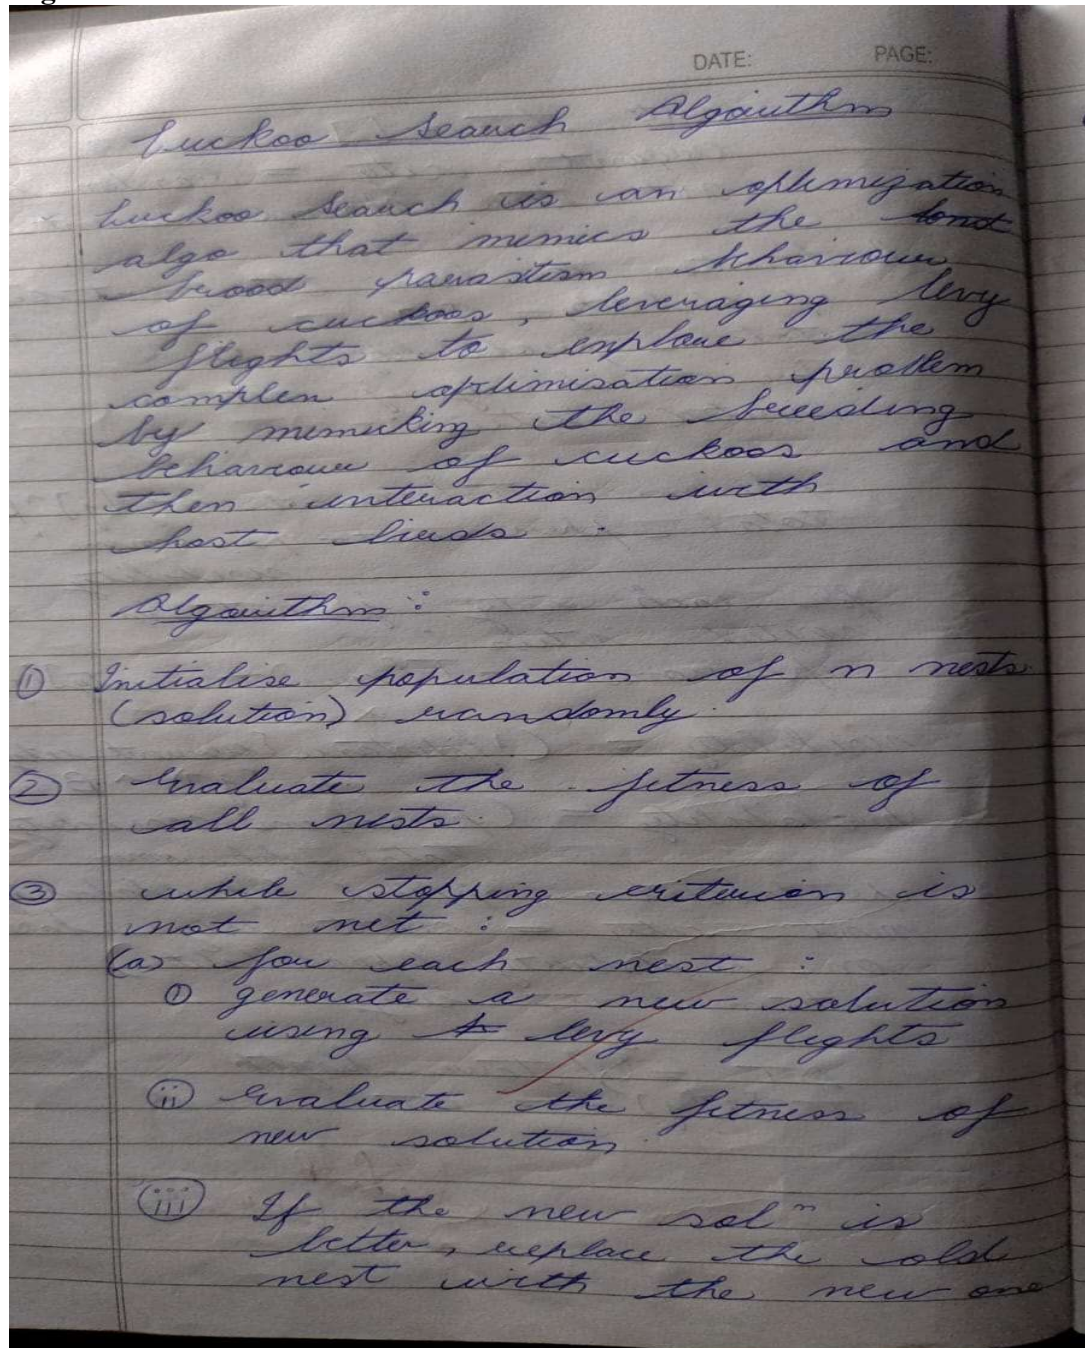 DATE: PAGE:
Cuckoo Search Algorithm
Cuckoo Search is an optimization
algo that mimics the
brood parasitism behaviour
of cuckoos, leveraging levy
flights to explore the
complex optimisation problem
by mimicking the breeding
behaviour of cuckoos and
their interaction with
host birds.
Algorithm:
① Initialise population of n nests
(solution) randomly.
② Evaluate the fitness of
all nests.
③ while stopping criterion is
not met :
(a) for each nest :
① generate a new solution
using levy flights
ⓘⓘ Evaluate the fitness of
new solution.
ⓘⓘⓘ If the new solⁿ is
better, replace the old
nest with the new one